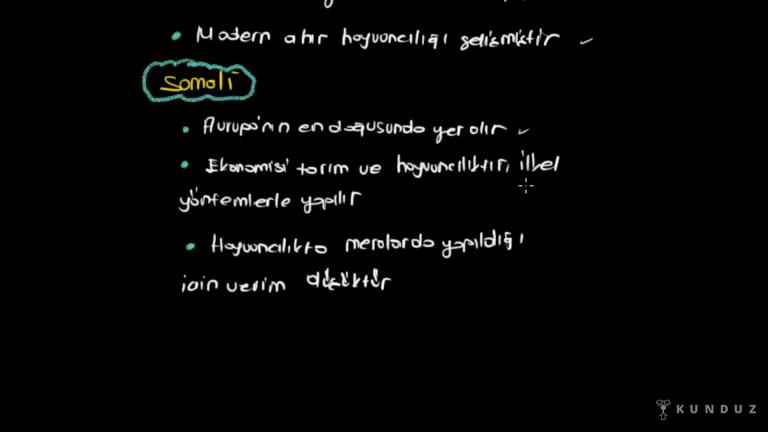 Modern ahır hayvancılığı gelişmiştir
Somali
Avrupa'nın en doğusunda yer alır
Ekonomisi tarım ve hayvancılıktır, ilkel
yöntemlerle yapılır
Hayvancılıkta meralarda yapıldığı
için verim düşüktür
KUNDUZ